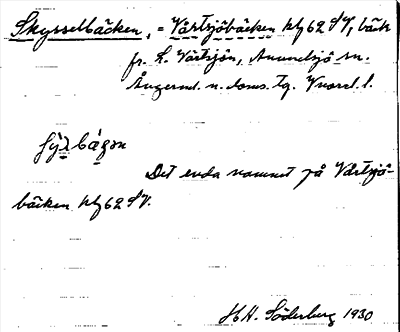 Skysselbäcken, = Vårtsjöbäcken kb 62 SV, bäck
fr. L. Vårtsjön, Anundsjö sn.
Ångerml. n. doms. tg. Vnorrl. l.
Det enda namnet på Vårtsjö-
bäcken kb 62 SV.
H.H. Söderberg 1930